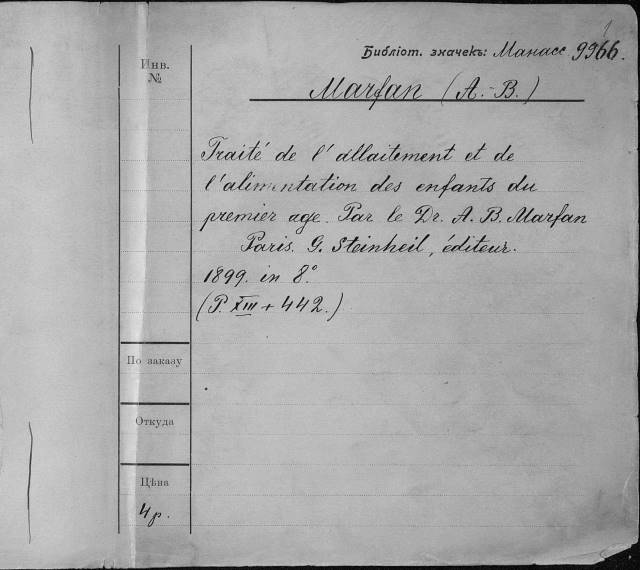 1
Библіот. значекъ: Манасс 9966.
Инв.
№
Marfan (A.-B.)
Traité de l'allaitement et de
l'alimentation des enfants du
premier age. Par le Dr. A. B. Marfan
Paris. G. Steinheil, éditeur.
1899. in 8°
(P. XIII + 442.)
По заказу
Откуда
Цѣна
4 р.